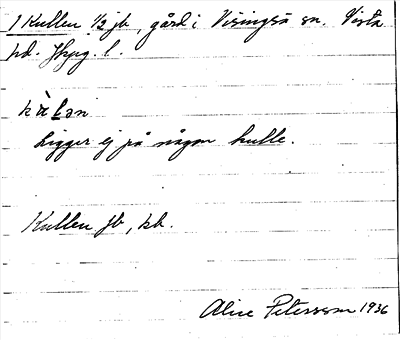 1 Kullen 1/2 jb, gård i Visingsö sn. Vista
hd. Jkpg. l.
kɵ̀lən
Ligger ej på någon kulle.
Kullen jb, kb.
Alice Petersson 1936